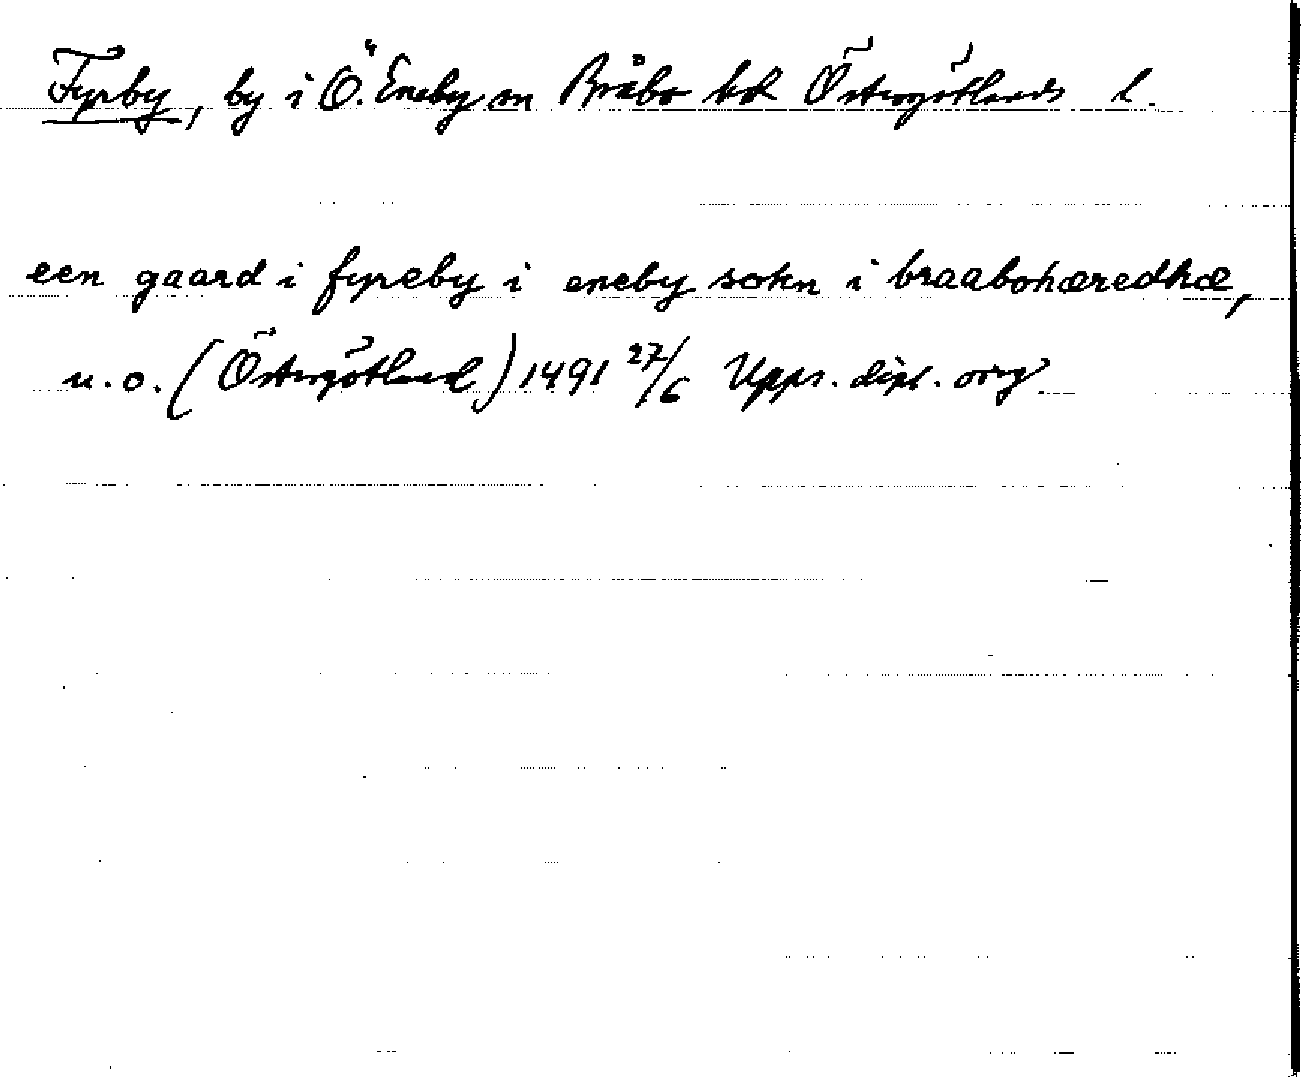 Fyrby, by i Ö. Eneby sn Bråbo hd Östergötlands l.
een gaard i fyreby i eneby sokn i braabohæredhæ,
u.o. (Östergötland) 1491 27/6 Upps. dipl. orig